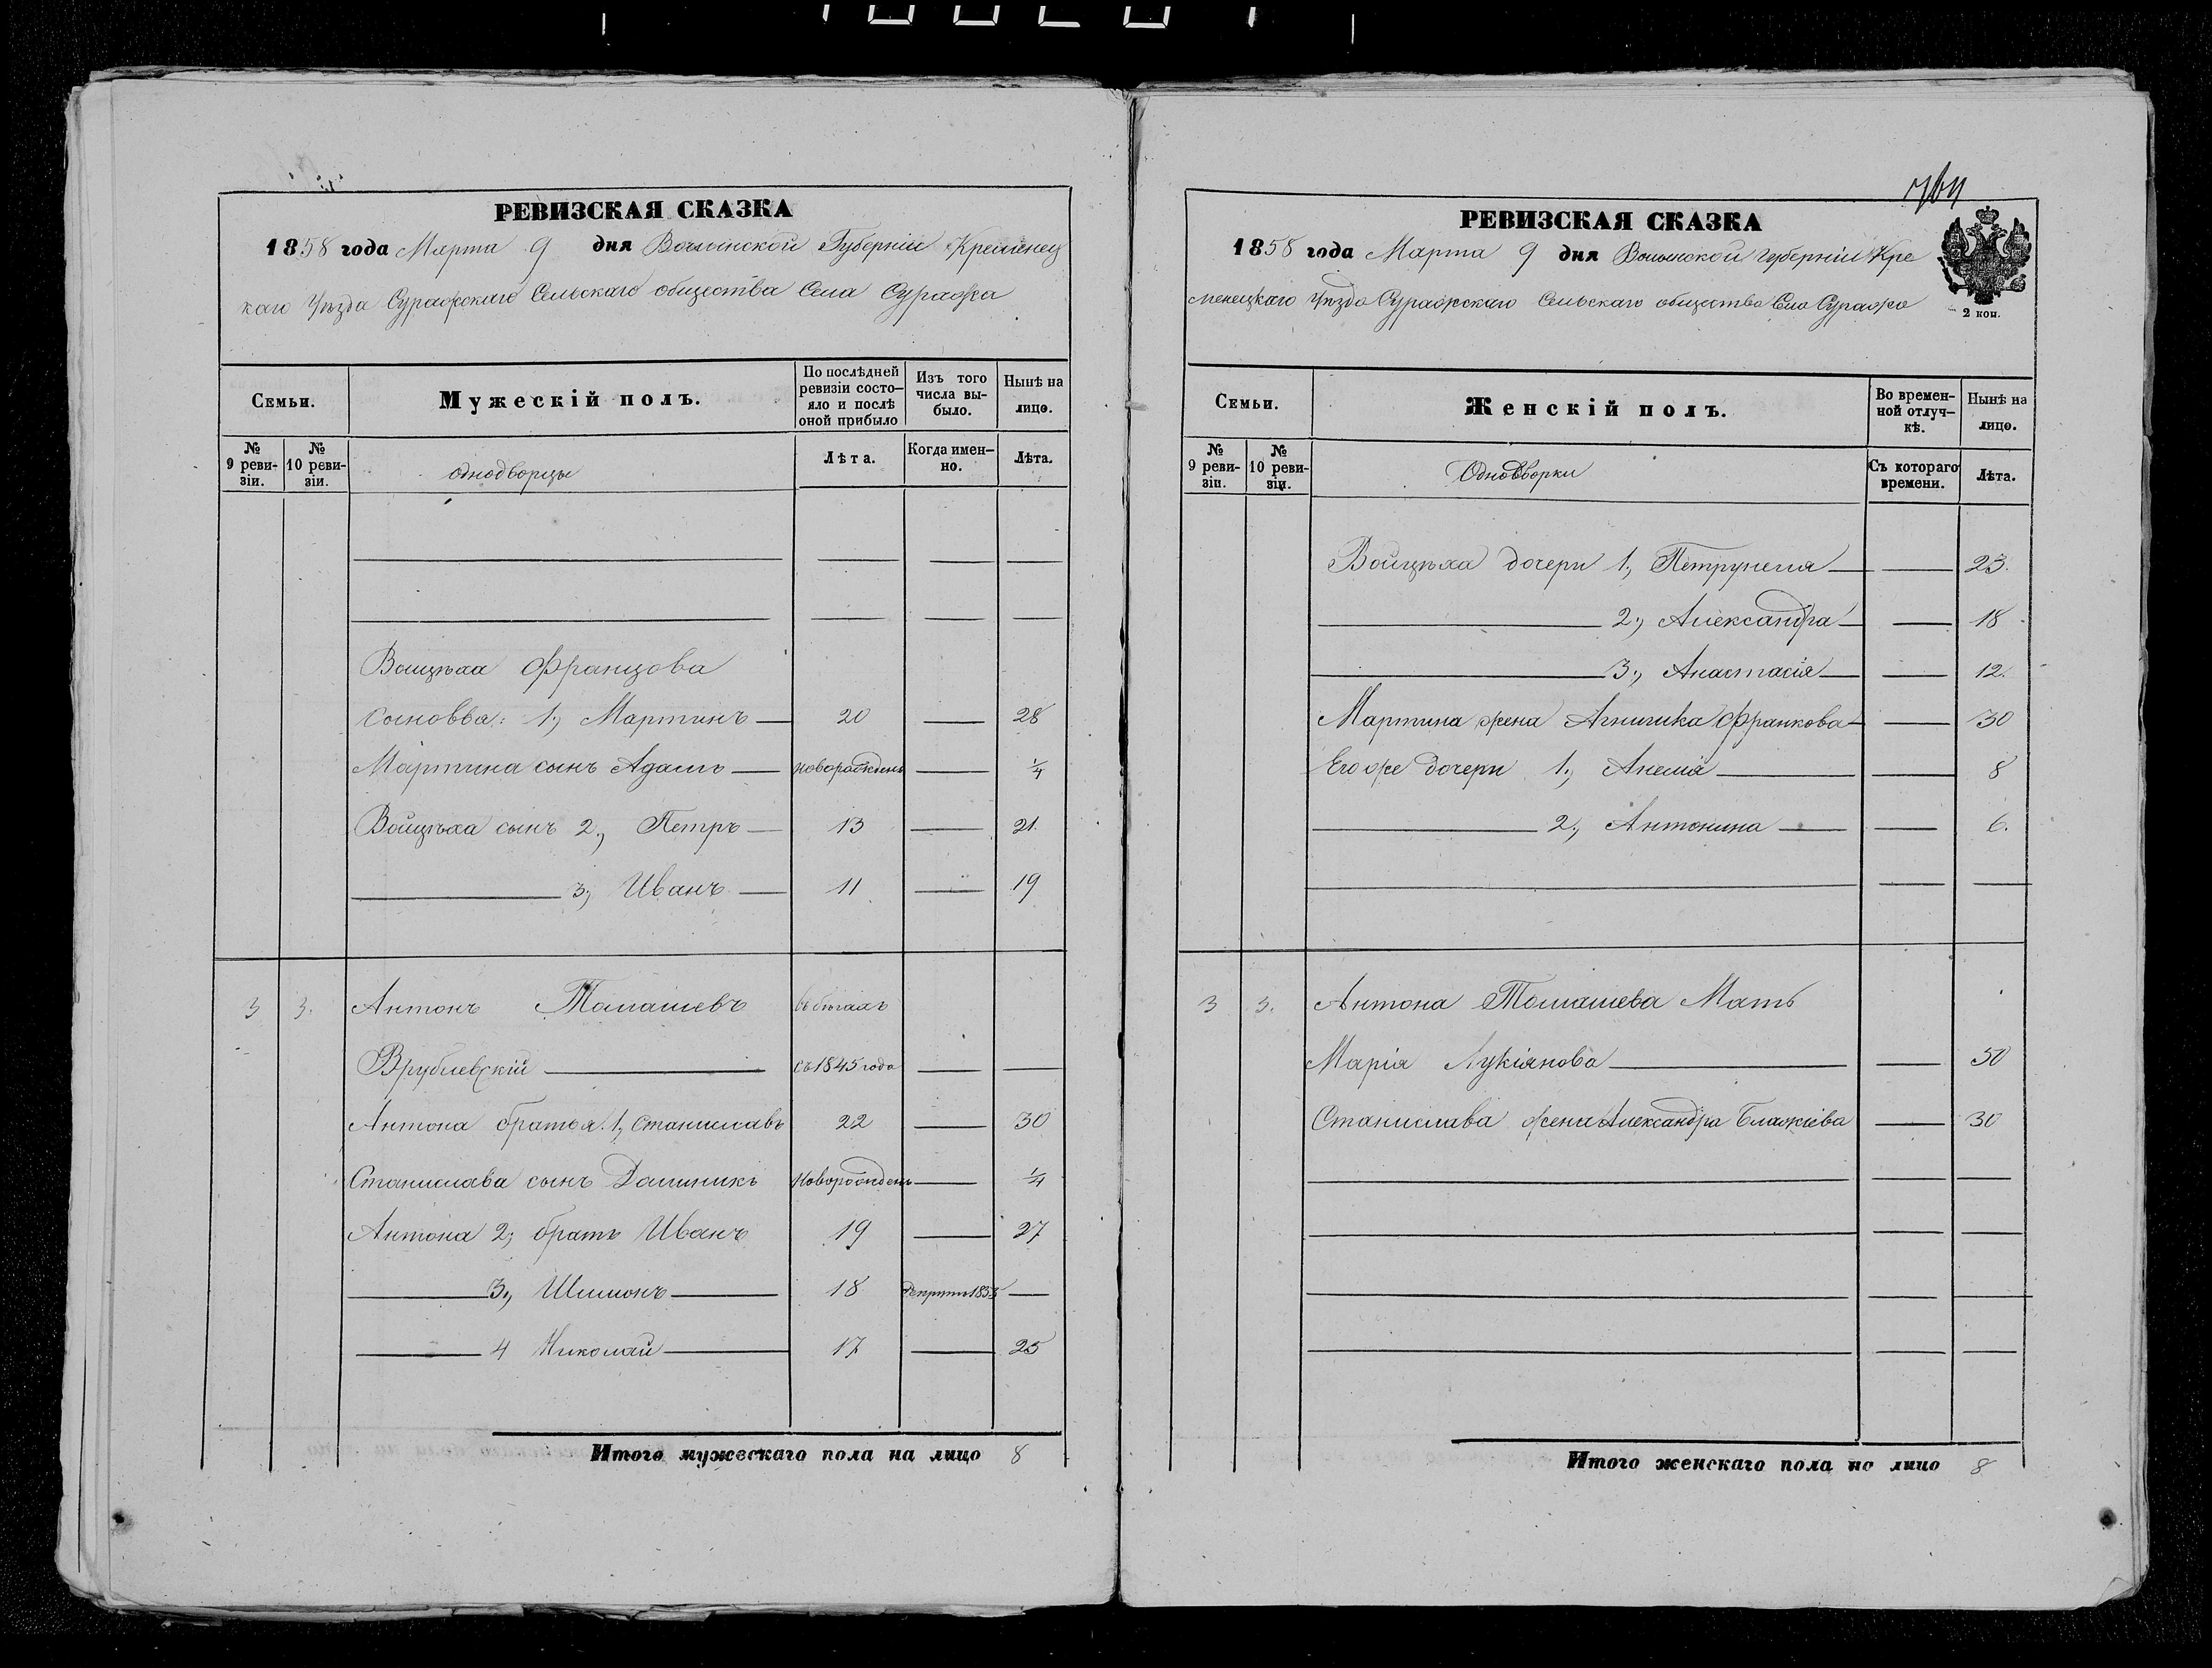 РЕВИЗСКАЯ СКАЗКА
1858 года Марта 9 дня Волынской Губерніи Кременец
каго Уѣзда Суражскаго Сельскаго общества Села Суража
Семьи.
Мужескій полъ.
По послѣдней ревизіи состо-
яло и послѣ оной прибыло
Изъ того числа вы-
было.
Нынѣ на лицо.
№ 9 реви-
зіи.
№ 10 реви-
зіи.
однодворцы
Лѣта.
Когда имен-
но.
Лѣта.
Войцѣха Францова
сыновья: 1, Мартинъ 20 28
Мартина сынъ Адамъ новорожденъ 1/4
Войцѣха сынъ 2, Петръ 13 21
3, Иванъ 11 19
3 3. Антонъ Томашевъ въ бѣгахъ
Врублевскій съ 1845 года
Антона братья 1, Станиславъ 22 30
Станислава сынъ Доминикъ новорожденъ 1/4
Антона 2, братъ Иванъ 19 27
3, Шимонъ 18
4 Николай 17 25
Итого мужескаго пола на лицо 8
РЕВИЗСКАЯ СКАЗКА
1858 года Марта 9 дня Волынской губерніи Кре
менецкаго Уѣзда Суражскаго Сельскаго общества Села Суража
2 коп.
Семьи.
Женскій полъ.
Во времен-
ной отлуч-
кѣ.
Нынѣ на лицо.
№ 9 реви-
зіи.
№ 10 реви-
зіи.
Однодворки
Съ котораго времени.
Лѣта.
Войцѣха дочери 1, Петрунеля 23.
2, Александра 18
3, Анастасія 12.
Мартина жена Агнишка Франкова 30
Его же дочери 1, Анеля 8
2, Антонина 6.
3 3. Антона Томашева Мать
Марія Лукіянова 50
Станислава жена Александра Блажіева 30
Итого женскаго пола на лицо 8